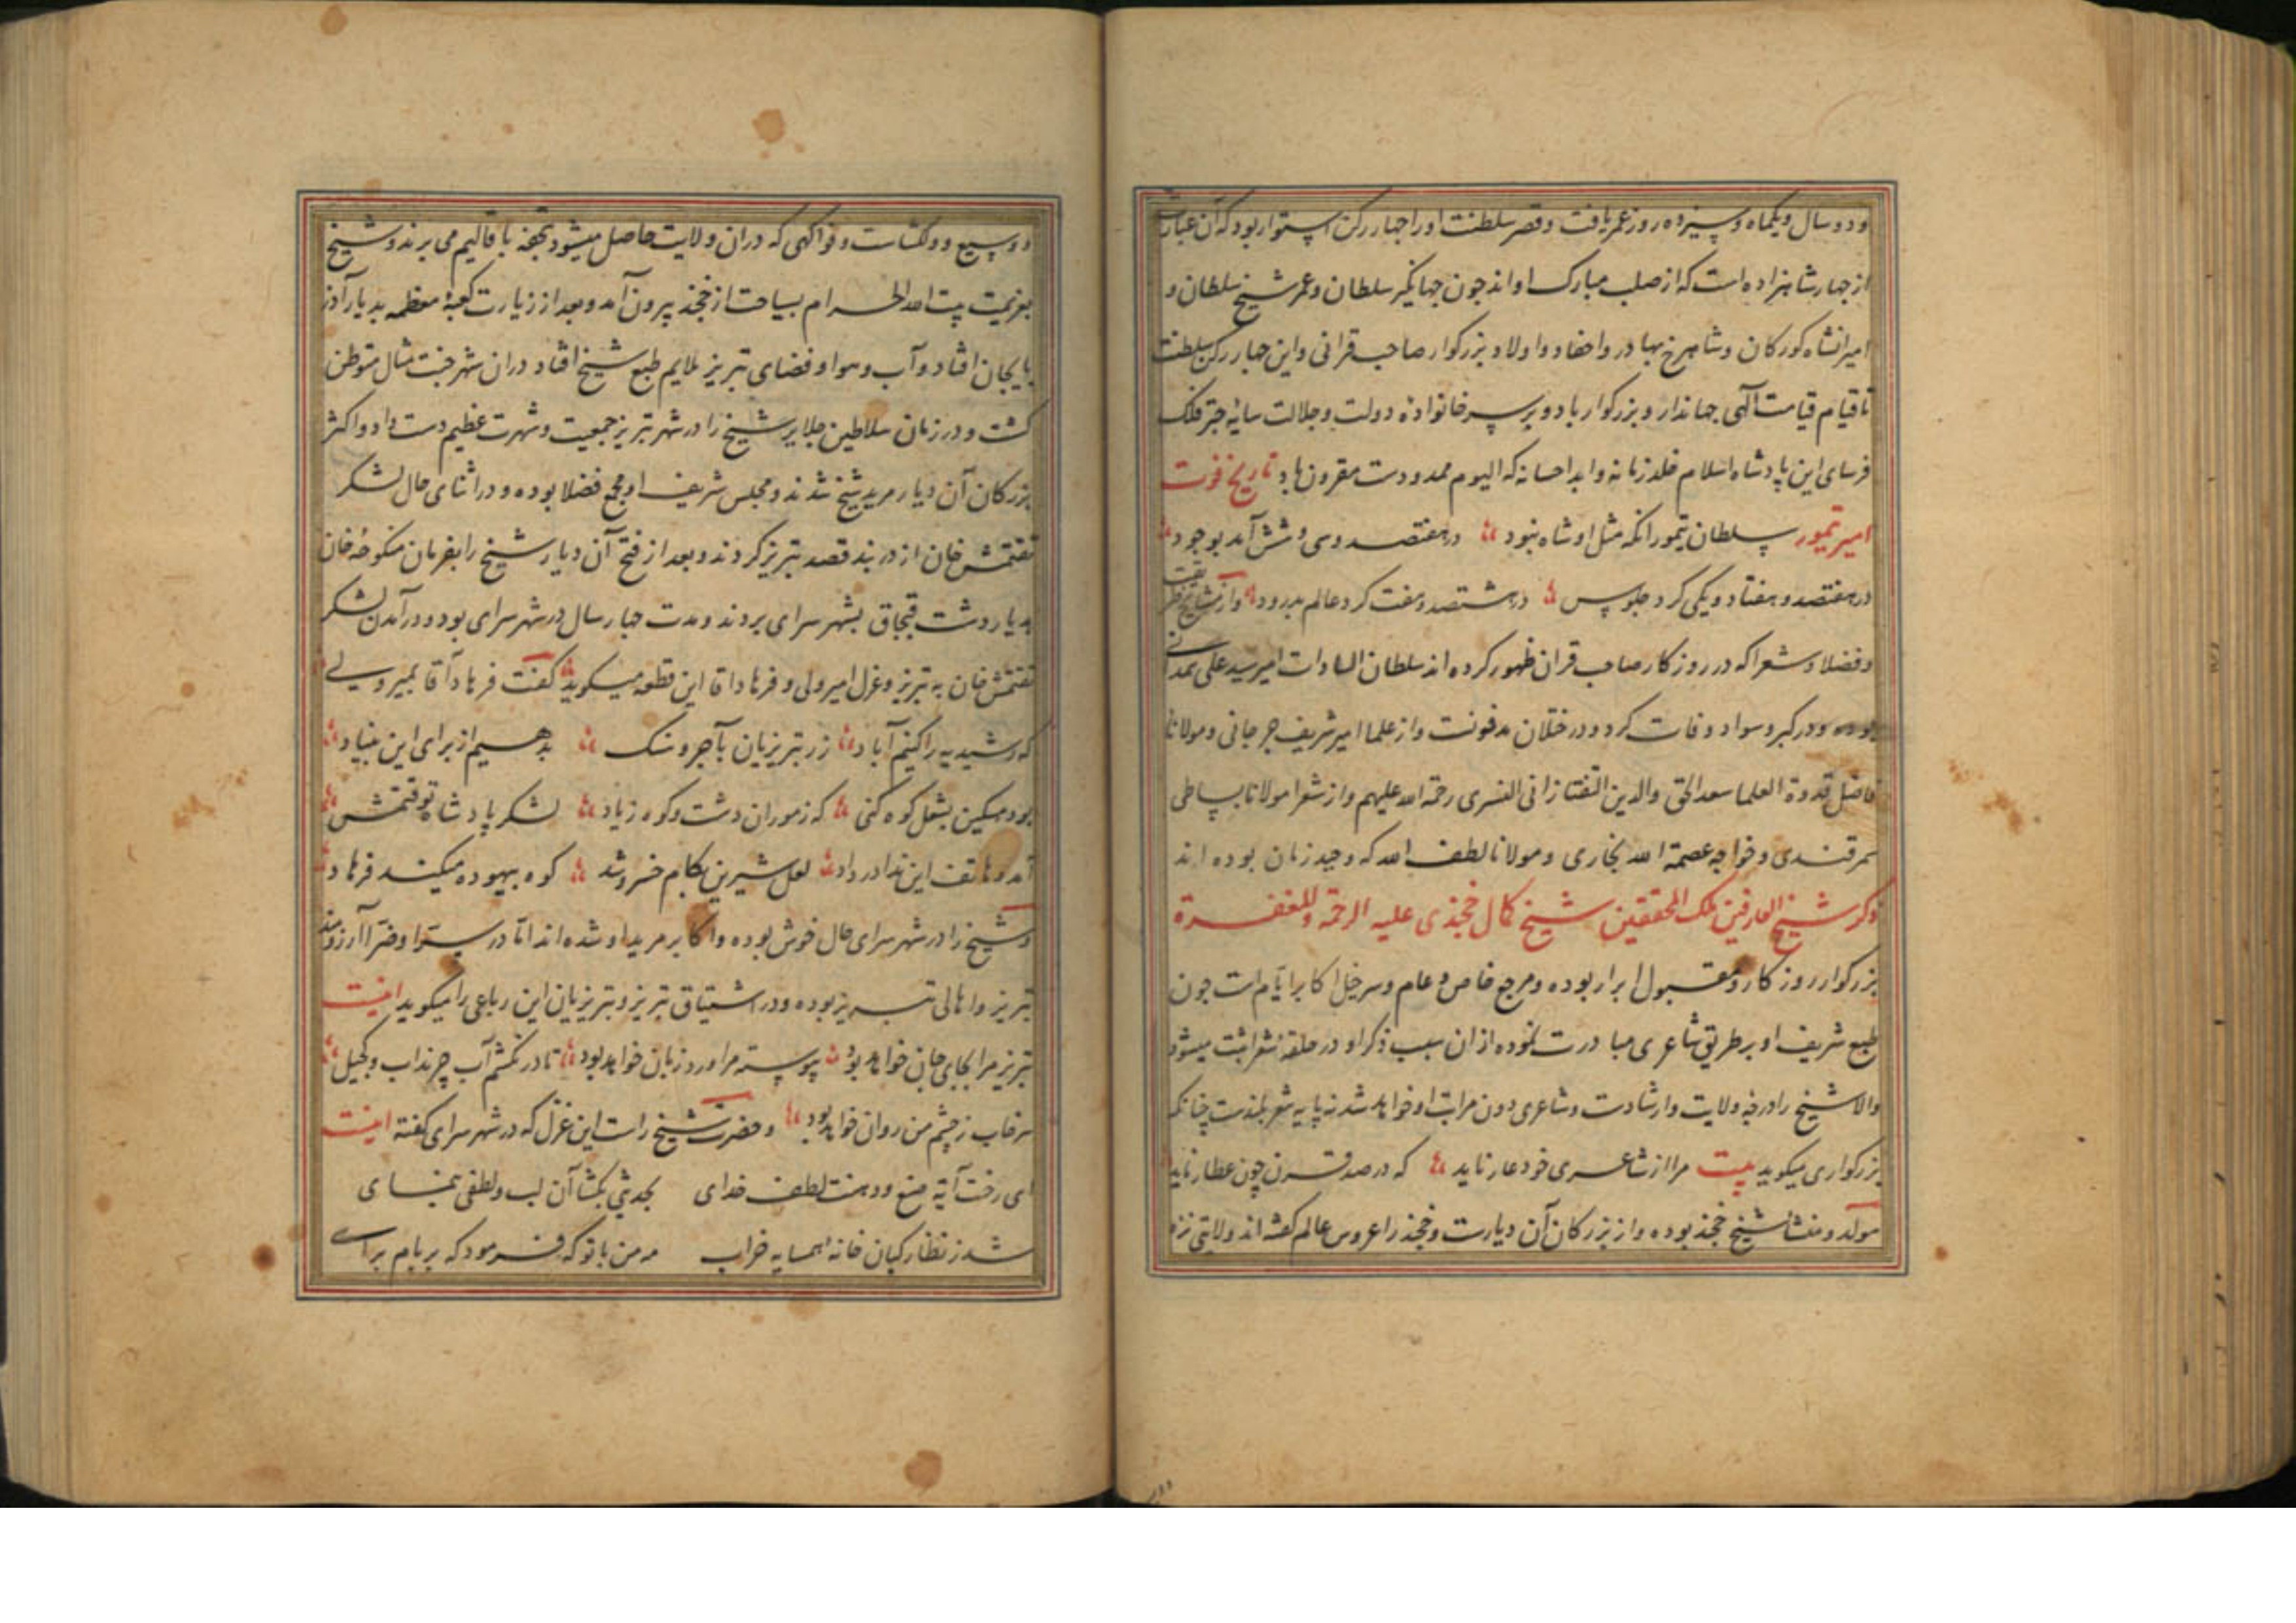 ودو سال ویکماه وسیزده روز عمر یافت وقصر سلطنت اورا چهار رکن استوار بود که آن عبارت
از چهار شاهزاده است که از صلب مبارک او اند چون جهانگیر سلطان وعمر شیخ سلطان و
امیرانشاه کورکان وشاهرخ بهادر واحفاد واولاد بزرکوار صاحب قرانی واین چهار رکن سلطنت
تا قیام قیامت آلهی جهاندار وبزرکوار باد وبر سر خانواده دولت وجلالت سایه چتر فلک
فرسای این پادشاه اسلام خلد زمانه وابد احسانه که الیوم ممدودست مقرون باد تاریخ فوت
امیر تیمور سلطان تیمور آنکه مثل او شاه نبود در هفتصد وسی وشش آمد بوجود
در هفتصد وهفتاد ویکی کرد جلوس در هشتصد وهفت کرد عالم بدرود واز مشایخ طریقت
وفضلا وشعرا که در روزکار صاحب قران ظهور کرده اند سلطان السادات امیر سید علی همدانی
بوده ودر کبر وسواد وفات کرد ودر ختلان مدفونست واز علما امیر شریف جرجانی ومولانا
فاضل قدوة العلما سعد الحق والدین التفتازانی النسری رحمة الله علیهم واز شعرا مولانا بساطی
سمرقندی وخواجه عصمة الله بخاری ومولانا لطف الله که وحید زمان بوده اند
ذکر شیخ العارفین ملک المحققین شیخ کمال خجندی علیه الرحمة والمغفرة
بزرکوار روزکار ومقبول ابرار بوده ومرجع خاص وعام وسرخیل اکابر ایام است چون
طبع شریف او بر طریق شاعری مبادرت نموده از ان سبب ذکر او در حلقه شعرا ثبت میشود
والا شیخ را درجه ولایت وارشادست وشاعری دون مراتب او خواهد شد نه پایه شعر بلندست چنانکه
بزرکواری میکوید بیت مرا از شاعری خود عار ناید که در صد قرن چون عطار ناید
مولد ومنشأ شیخ خجند بوده واز بزرکان آن دیارست وخجند را عروس عالم کفته اند ولایتی نزه
ووسیع ودلکشاست وفواکهی که دران ولایت حاصل میشود بتحفه باقالیم می برند وشیخ
بعزیمت بیت الله الحرام بسیاحت از خجند بیرون آمد وبعد از زیارت کعبه معظمه بدیار آذر
بایجان افتاد وآب وهوا وفضای تبریز ملایم طبع شیخ افتاد دران شهر جنت مثال متوطن
کشت ودر زمان سلاطین جلایر شیخ را در شهر تبریز جمعیت وشهرت عظیم دست داد واکثر
بزرکان آن دیار مرید شیخ شدند ومجلس شریف او مجمع فضلا بوده ودر اثنای حال لشکر
تقتمش خان از دربند قصد تبریز کردند وبعد از فتح آن دیار شیخ را بفرمان منکوحه خان
بدیار دشت قبچاق بشهر سرای بردند ومدت چهار سال در شهر سرای بود ودر آمدن لشکر
تقتمش خان به تبریز وغزل امیر ولی وفرهاد اقا این قطعه میکوید کفت فرهاد آقا بمیر ولی
که رشیدیه را کنیم آباد زر تبریزیان بآجر وسنک بدهیم از برای این بنیاد
بود مسکین بشغل کوه کنی که ز موران دشت وکوه زیاد لشکر پادشاه توقتمش
آمد وهاتف این ندا در داد لعل شیرین بکام خسرو شد کوه بیهوده میکند فرهاد
وشیخ را در شهر سرای حال خوش بوده واکابر مرید او شده اند اما در سرّا وضرّا آرزومند
تبریز واهالی تبریز بوده ودر اشتیاق تبریز وتبریزیان این رباعی را میکوید اینست
تبریز مرا بجای جان خواهد بود پیوسته مرا ورد زبان خواهد بود تا در نکشم آب چرنداب وکجیل
سرخاب ز چشم من روان خواهد بود وحضرت شیخ راست این غزل که در شهر سرای کفته اینست
ای رخت آیه صنع ودهنت لطف خدای بحدیثی بکشا آن لب ولطفی بنمای
شد ز نظارکیان خانه همسایه خراب مه من با تو که فرمود که بر بام برای